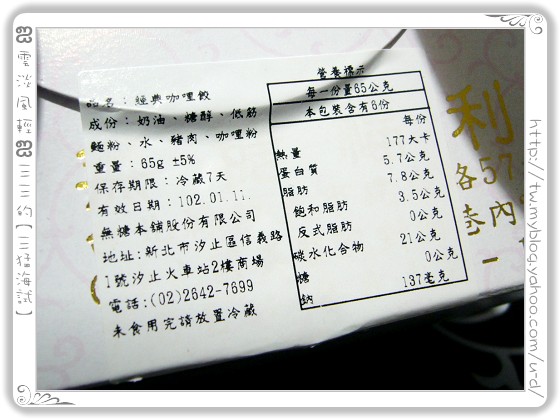 雲淡風輕
三三三的【三猛海試】
品名：經典咖哩餃
成份：奶油、糖醇、低筋
麵粉、水、豬肉、咖哩粉
重量：65g ±5%
保存期限：冷藏7天
有效日期：102.01.11.
無糖本舖股份有限公司
地址:新北市汐止區信義路
1號汐止火車站2樓商場
電話:(02)2642-7699
未食用完請放置冷藏
營養標示
每一份量65公克
本包裝含有6份
每份
熱量 177大卡
蛋白質 5.7公克
脂肪 7.8公克
飽和脂肪 3.5公克
反式脂肪 0公克
碳水化合物 21公克
糖 0公克
鈉 137毫克
利
各57
內
http://tw.myblog.yahoo.com/u-d/